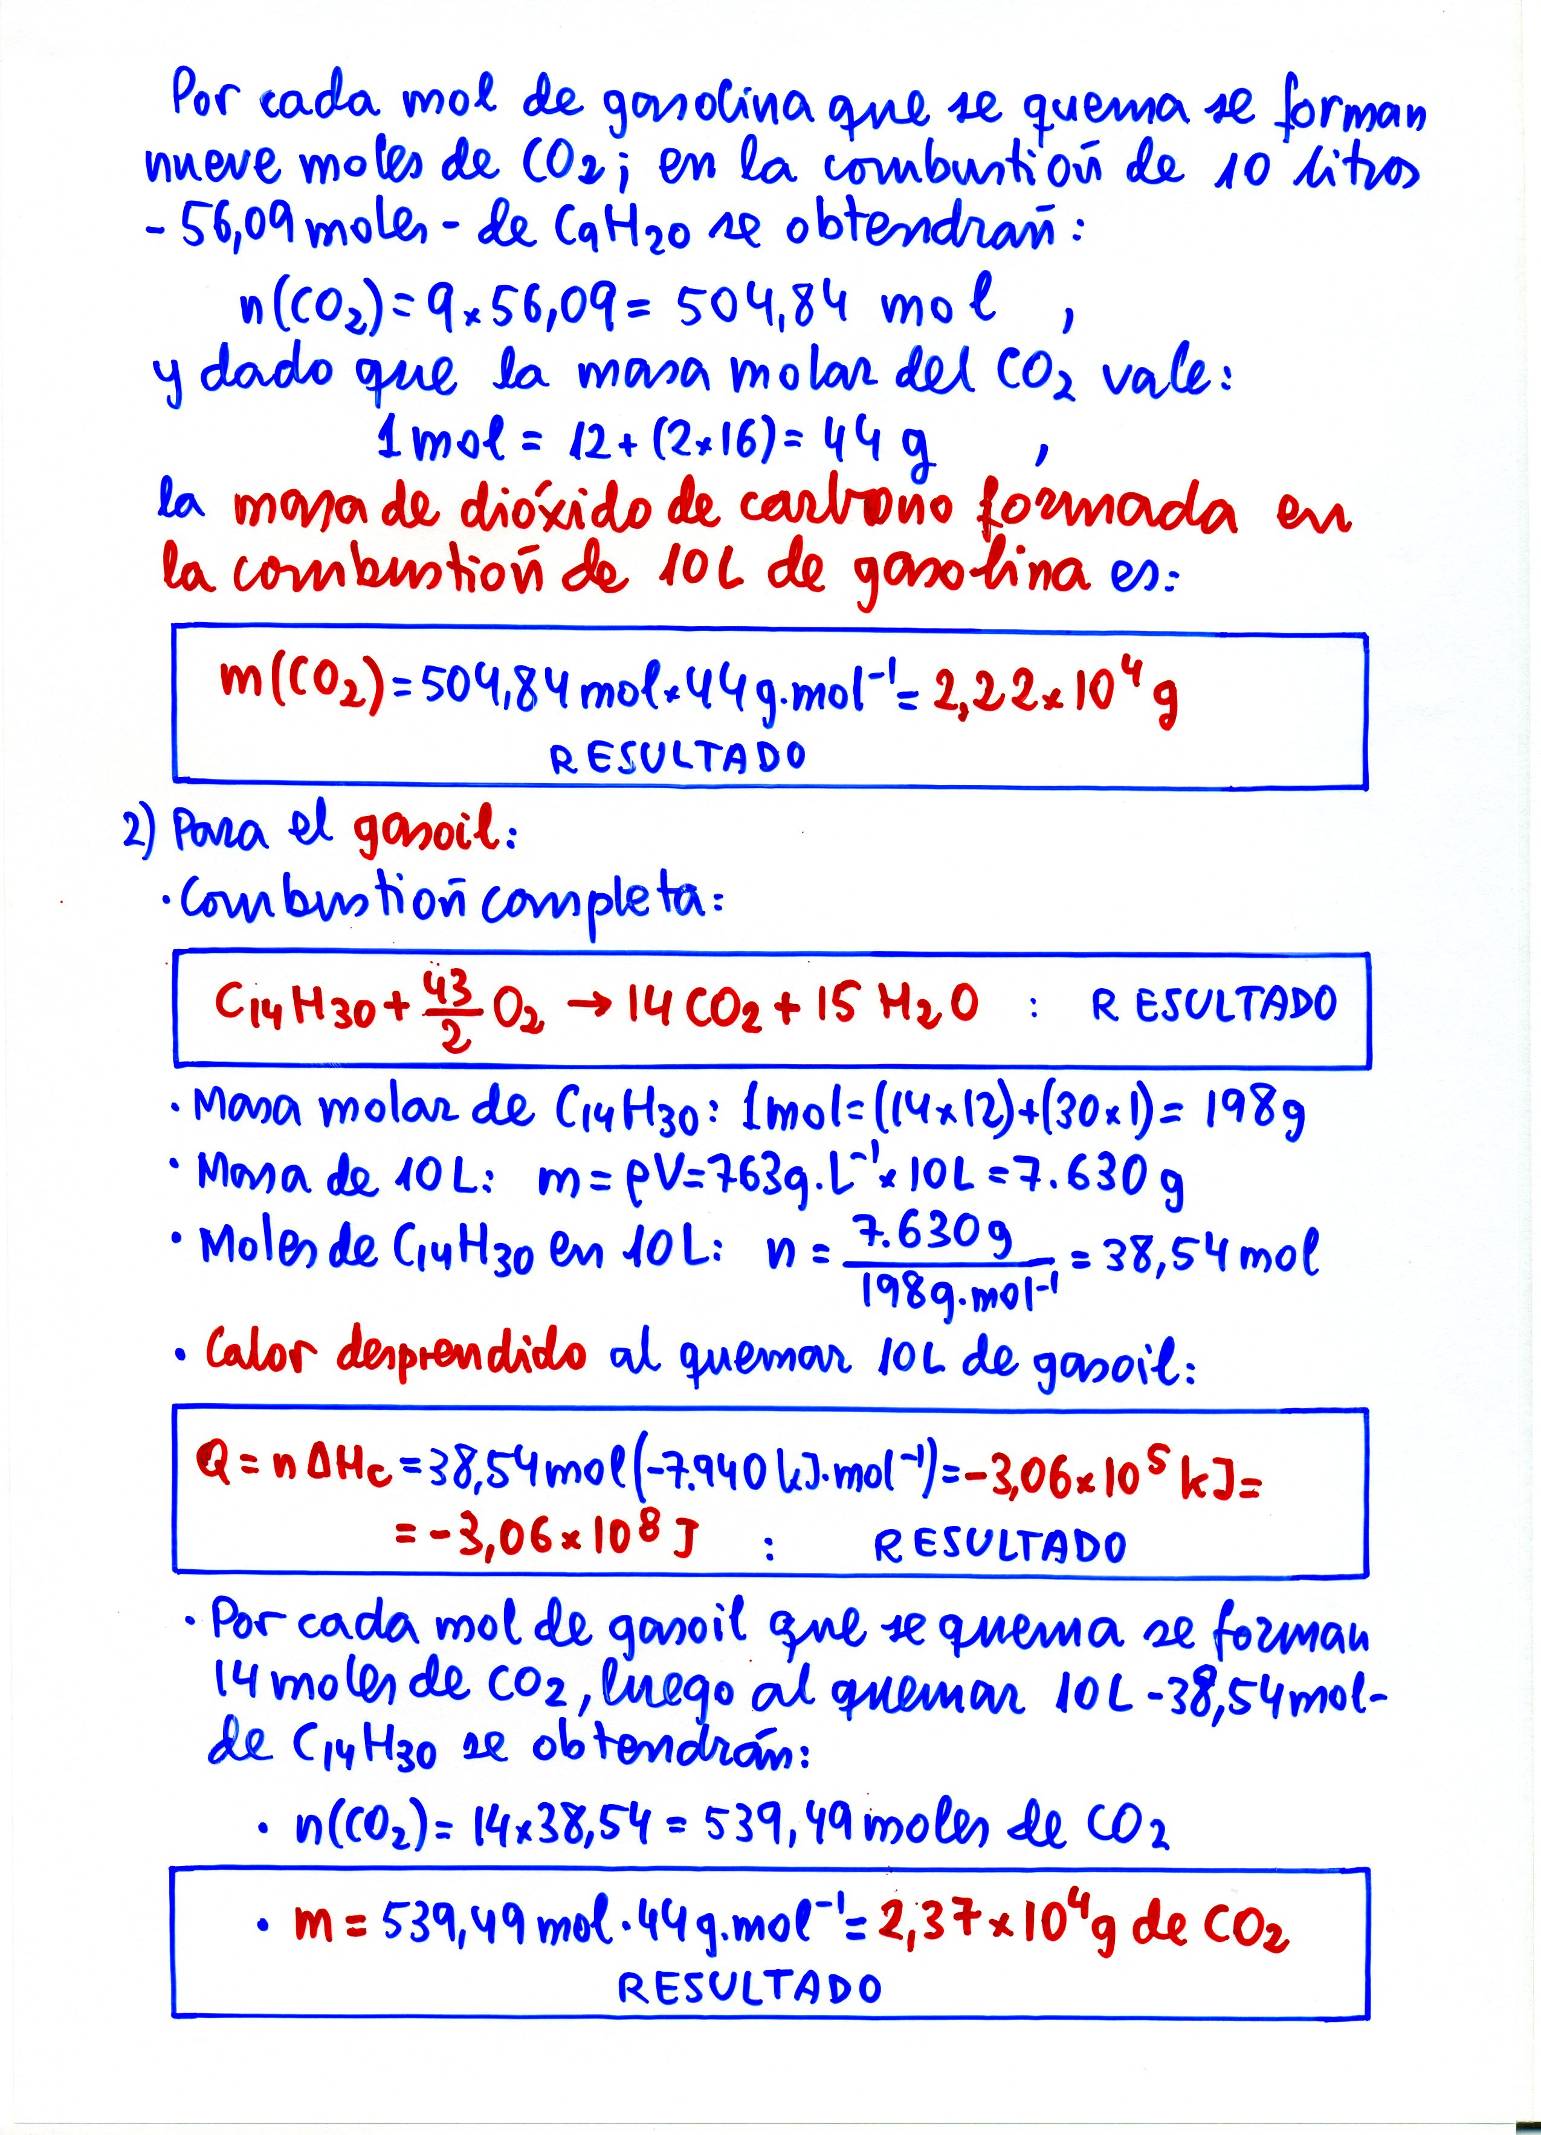 Por cada mol de gasolina que se quema se forman
nueve moles de CO₂; en la combustión de 10 litros
- 56,09 moles - de C₉H₂₀ se obtendrán:
n(CO₂) = 9 × 56,09 = 504,84 mol ,
y dado que la masa molar del CO₂ vale:
1 mol = 12 + (2×16) = 44 g ,
la masa de dióxido de carbono formada en
la combustión de 10L de gasolina es:
m(CO₂) = 504,84 mol × 44 g·mol⁻¹ = 2,22 × 10⁴ g
RESULTADO
2) Para el gasoil:
· Combustión completa:
C₁₄H₃₀ + 43/2 O₂ → 14 CO₂ + 15 H₂O : RESULTADO
· Masa molar de C₁₄H₃₀: 1 mol = (14×12) + (30×1) = 198 g
· Masa de 10L: m = ρV = 763 g·L⁻¹ × 10L = 7.630 g
· Moles de C₁₄H₃₀ en 10L: n = 7.630 g / 198 g·mol⁻¹ = 38,54 mol
· Calor desprendido al quemar 10L de gasoil:
Q = n ΔHc = 38,54 mol (-7.940 kJ·mol⁻¹) = -3,06 × 10⁵ kJ =
= -3,06 × 10⁸ J : RESULTADO
· Por cada mol de gasoil que se quema se forman
14 moles de CO₂, luego al quemar 10L - 38,54 mol -
de C₁₄H₃₀ se obtendrán:
· n(CO₂) = 14 × 38,54 = 539,49 moles de CO₂
· m = 539,49 mol · 44 g·mol⁻¹ = 2,37 × 10⁴ g de CO₂
RESULTADO